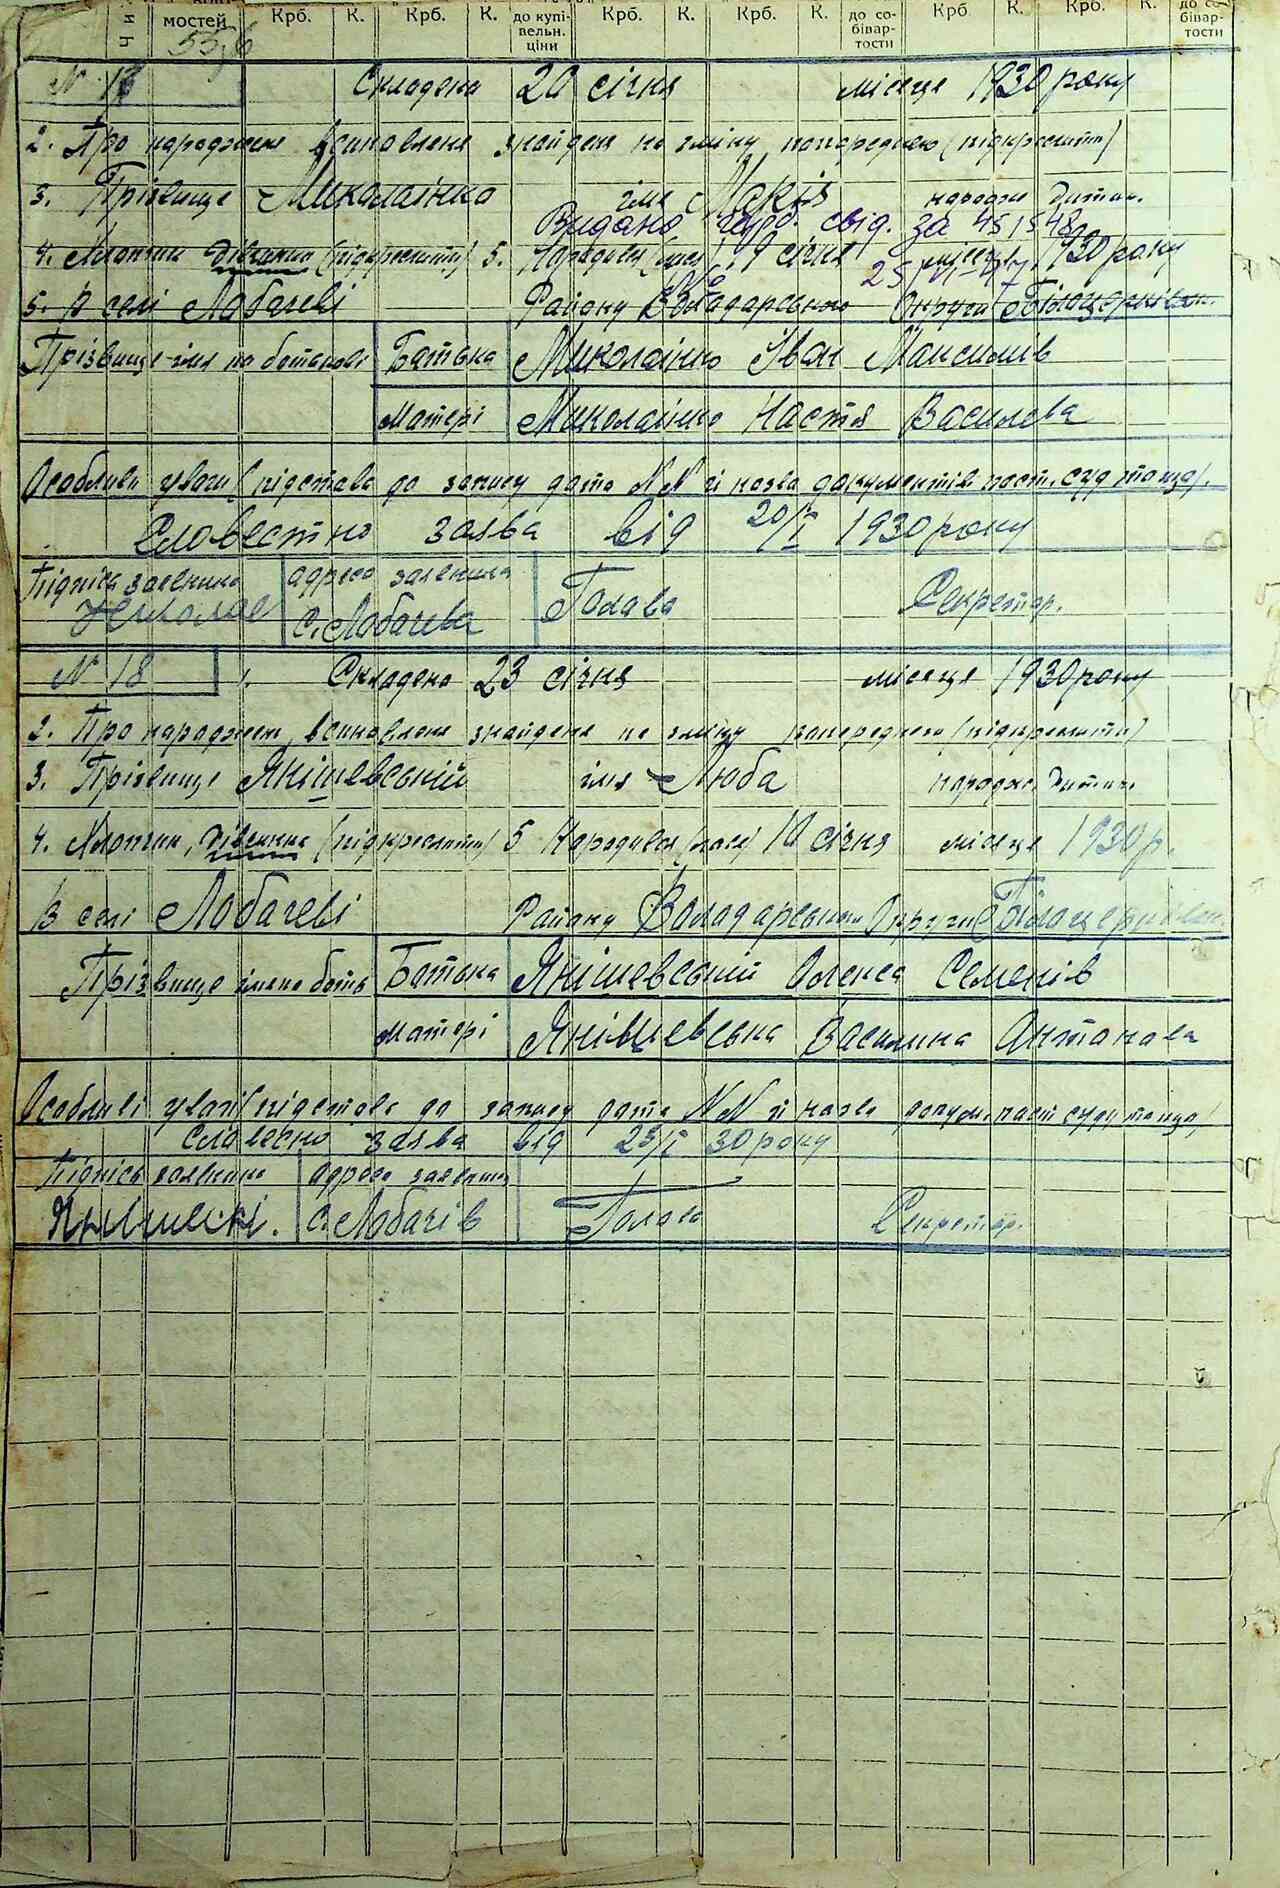 мостей Крб. К. Крб. К. до купі-вельн. ціни Крб. К. Крб. К. до со-бівар-тости Крб К. Крб. К. до со-бівар-тости
55,6
N 17 Складена 20 січня місяця 1930 року
2. Про народженя всиновленя знайденя по зміну попереднёю (підкреслити)
3. Прізвище Миколаінко імя Марія народж. дитин.
Видано свід. за 451548
4. Хлопчик дівчинка (підкреслити) 5. Народився (лась) 9 січня місяця 1930 року
5. В селі Лобачеві Району Володарського Округи Білоцерківськ.
Прізвище імя по батькові Батька Миколаінко Іван Максимів
Матері Миколаінко Настя Василева
Особливи уваги (підстава до запису дата NN й назва документів пост. суд тощо).
Словестно заява від 20/I 1930 року
Підпісь заявника адреса заявника Голова Секретар.
с. Лобачева
N 18 1. Складена 23 січня місяця 1930 року
2. Про народжен, всиновленя знайденя по зміну попереднёго (підкреслити)
3. Прізвище Янішевський імя Люба народж. дитин.
4. Хлопчик, дівчинка (підкреслити) 5 Народився (лась) 10 січня місяця 1930 р.
В селі Лобачеві Району Володарського Округи Білоцерківськ.
Прізвище імя по бать Батька Янішевський Олекса Семенів
Матері Янішевська Василина Антонова
Особливі уваги (підстава до запису дата NN й назва докум. пост суду тощо)
словесно заява від 23/I 30 року
Підпісь заявника адреса заявника
с. Лобачів Голова Секретар.